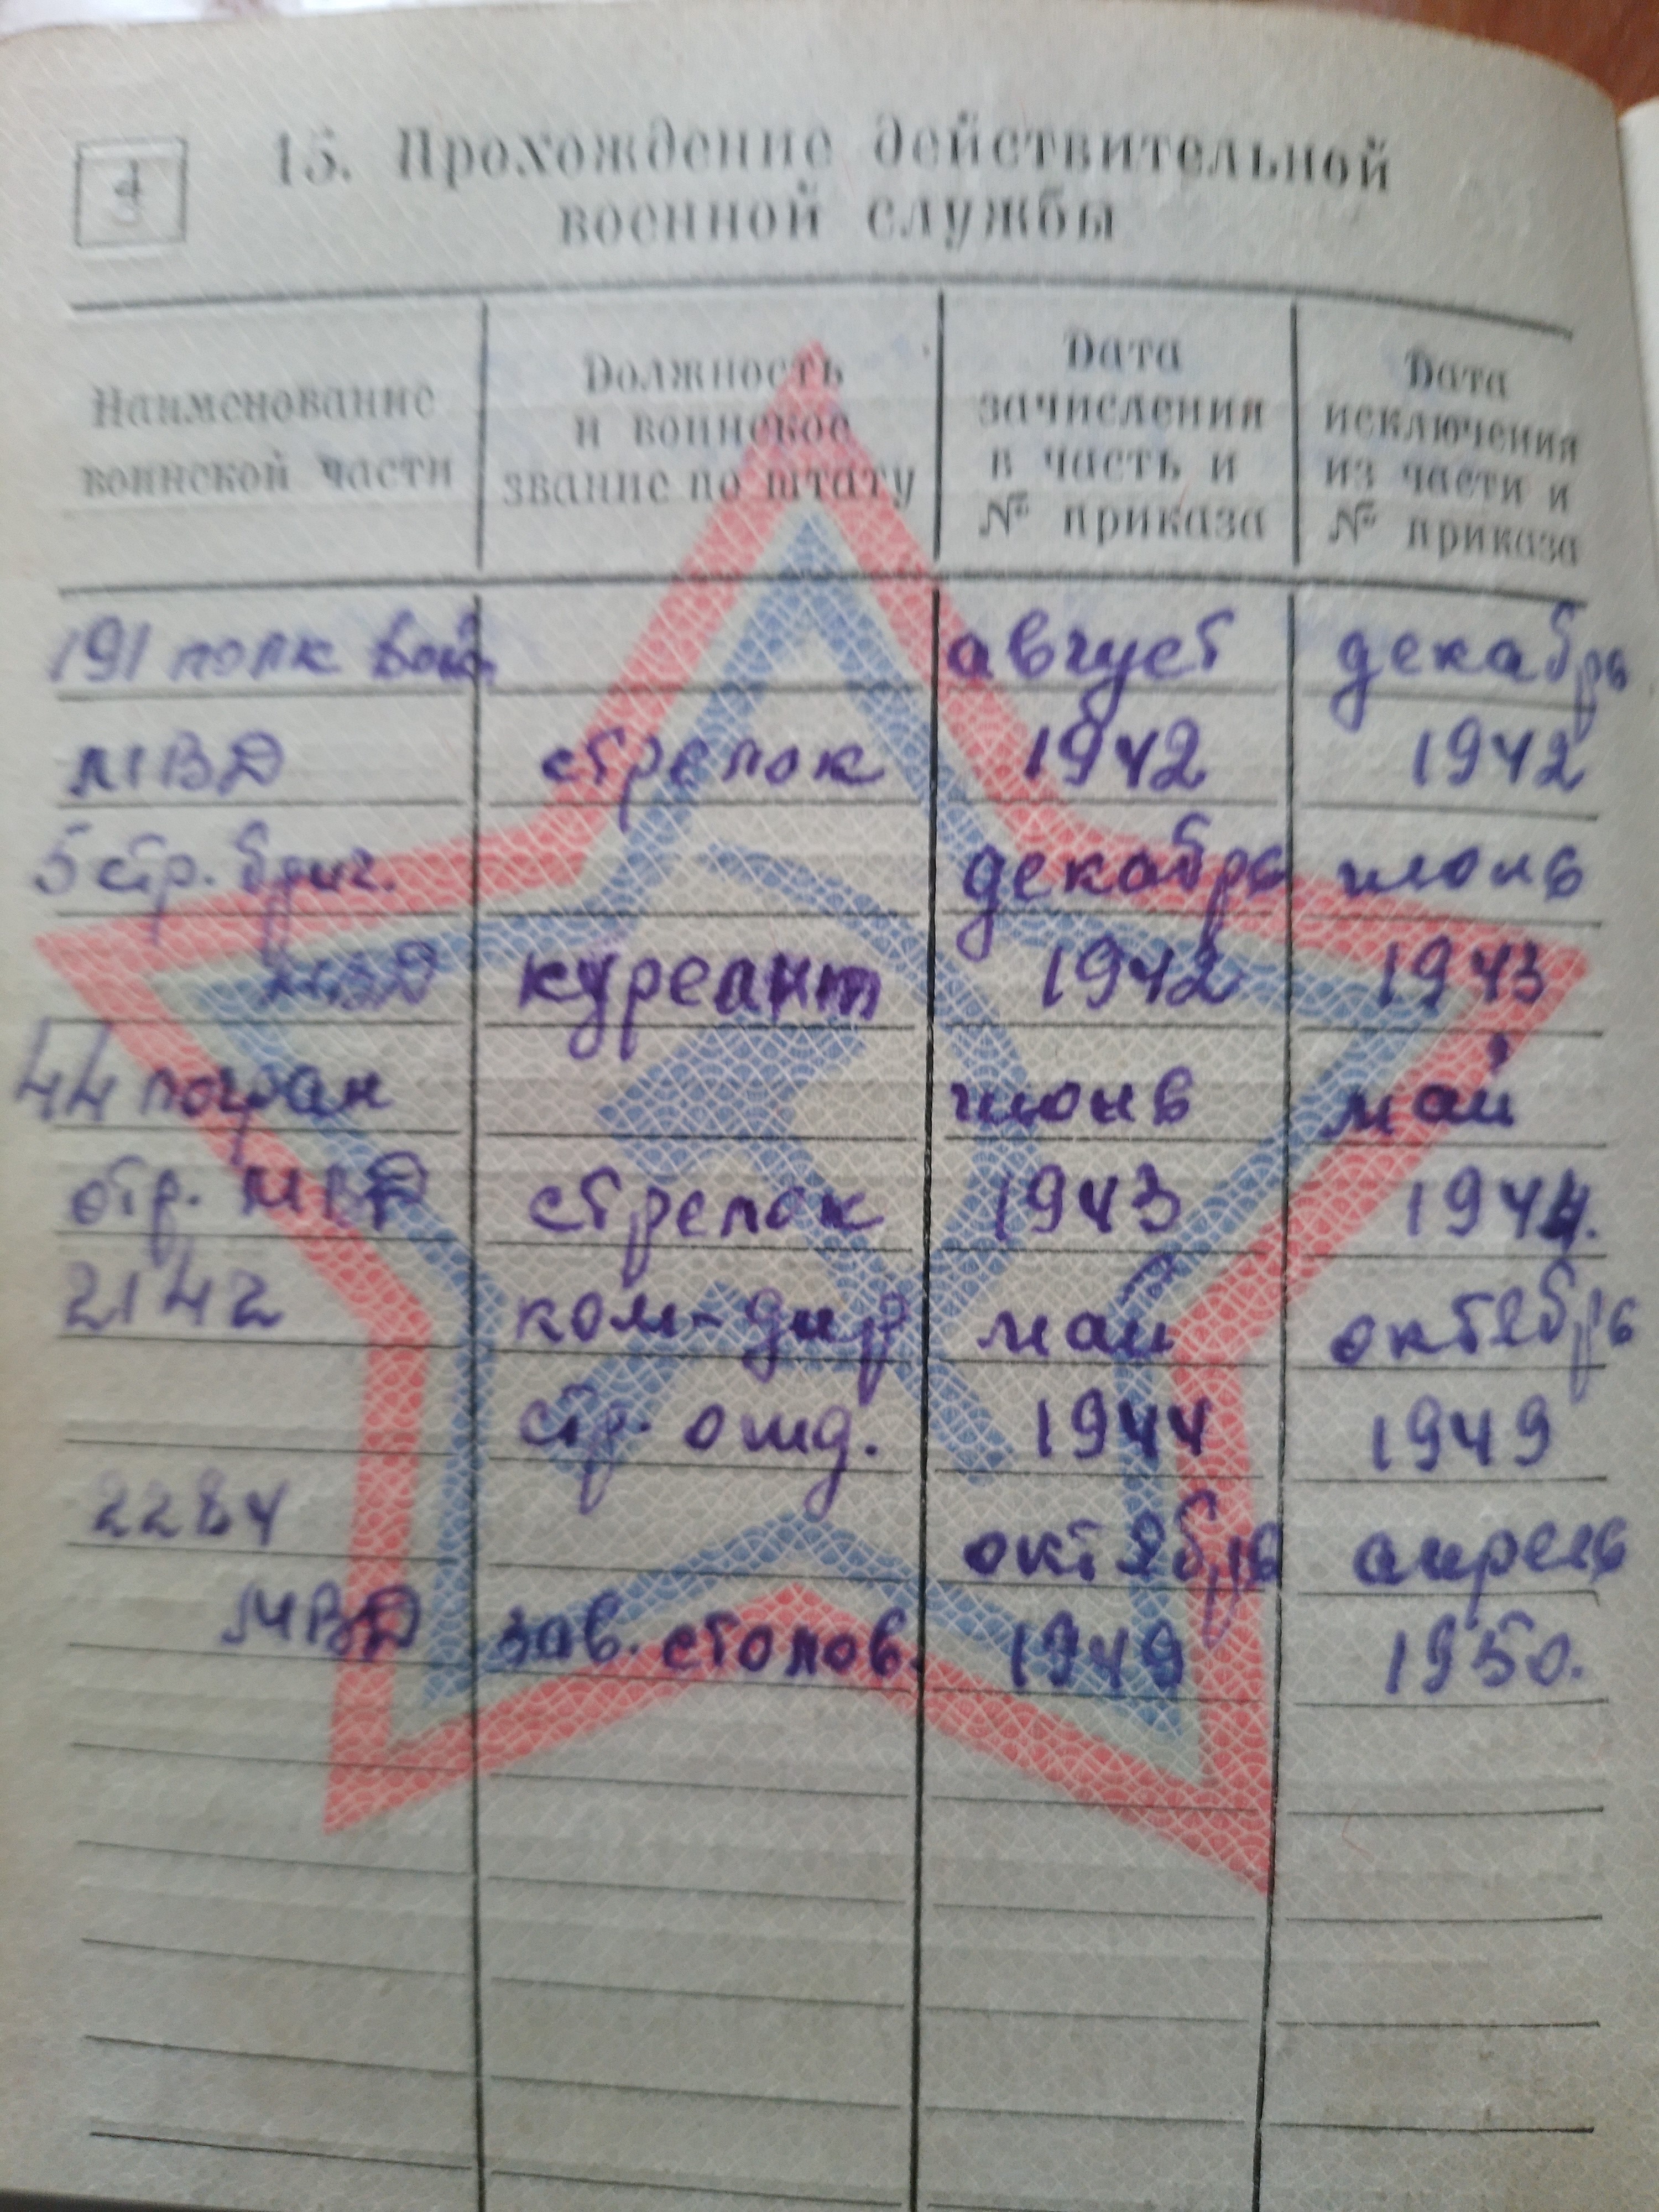 15. Прохождение действительной
военной службы
Наименование
воинской части
Должность
и воинское
звание по штату
Дата
зачисления
в часть и
№ приказа
Дата
исключения
из части и
№ приказа
191 полк войс. август декабрь
МВД стрелок 1942 1942
5 стр. бриг. декабрь июнь
МВД курсант 1942 1943
44 погран июнь май
отр. МВД стрелок 1943 1944.
2142 ком-дир май октябрь
стр. отд. 1944 1949
октябрь апрель
МВД зав. столов. 1949 1950.